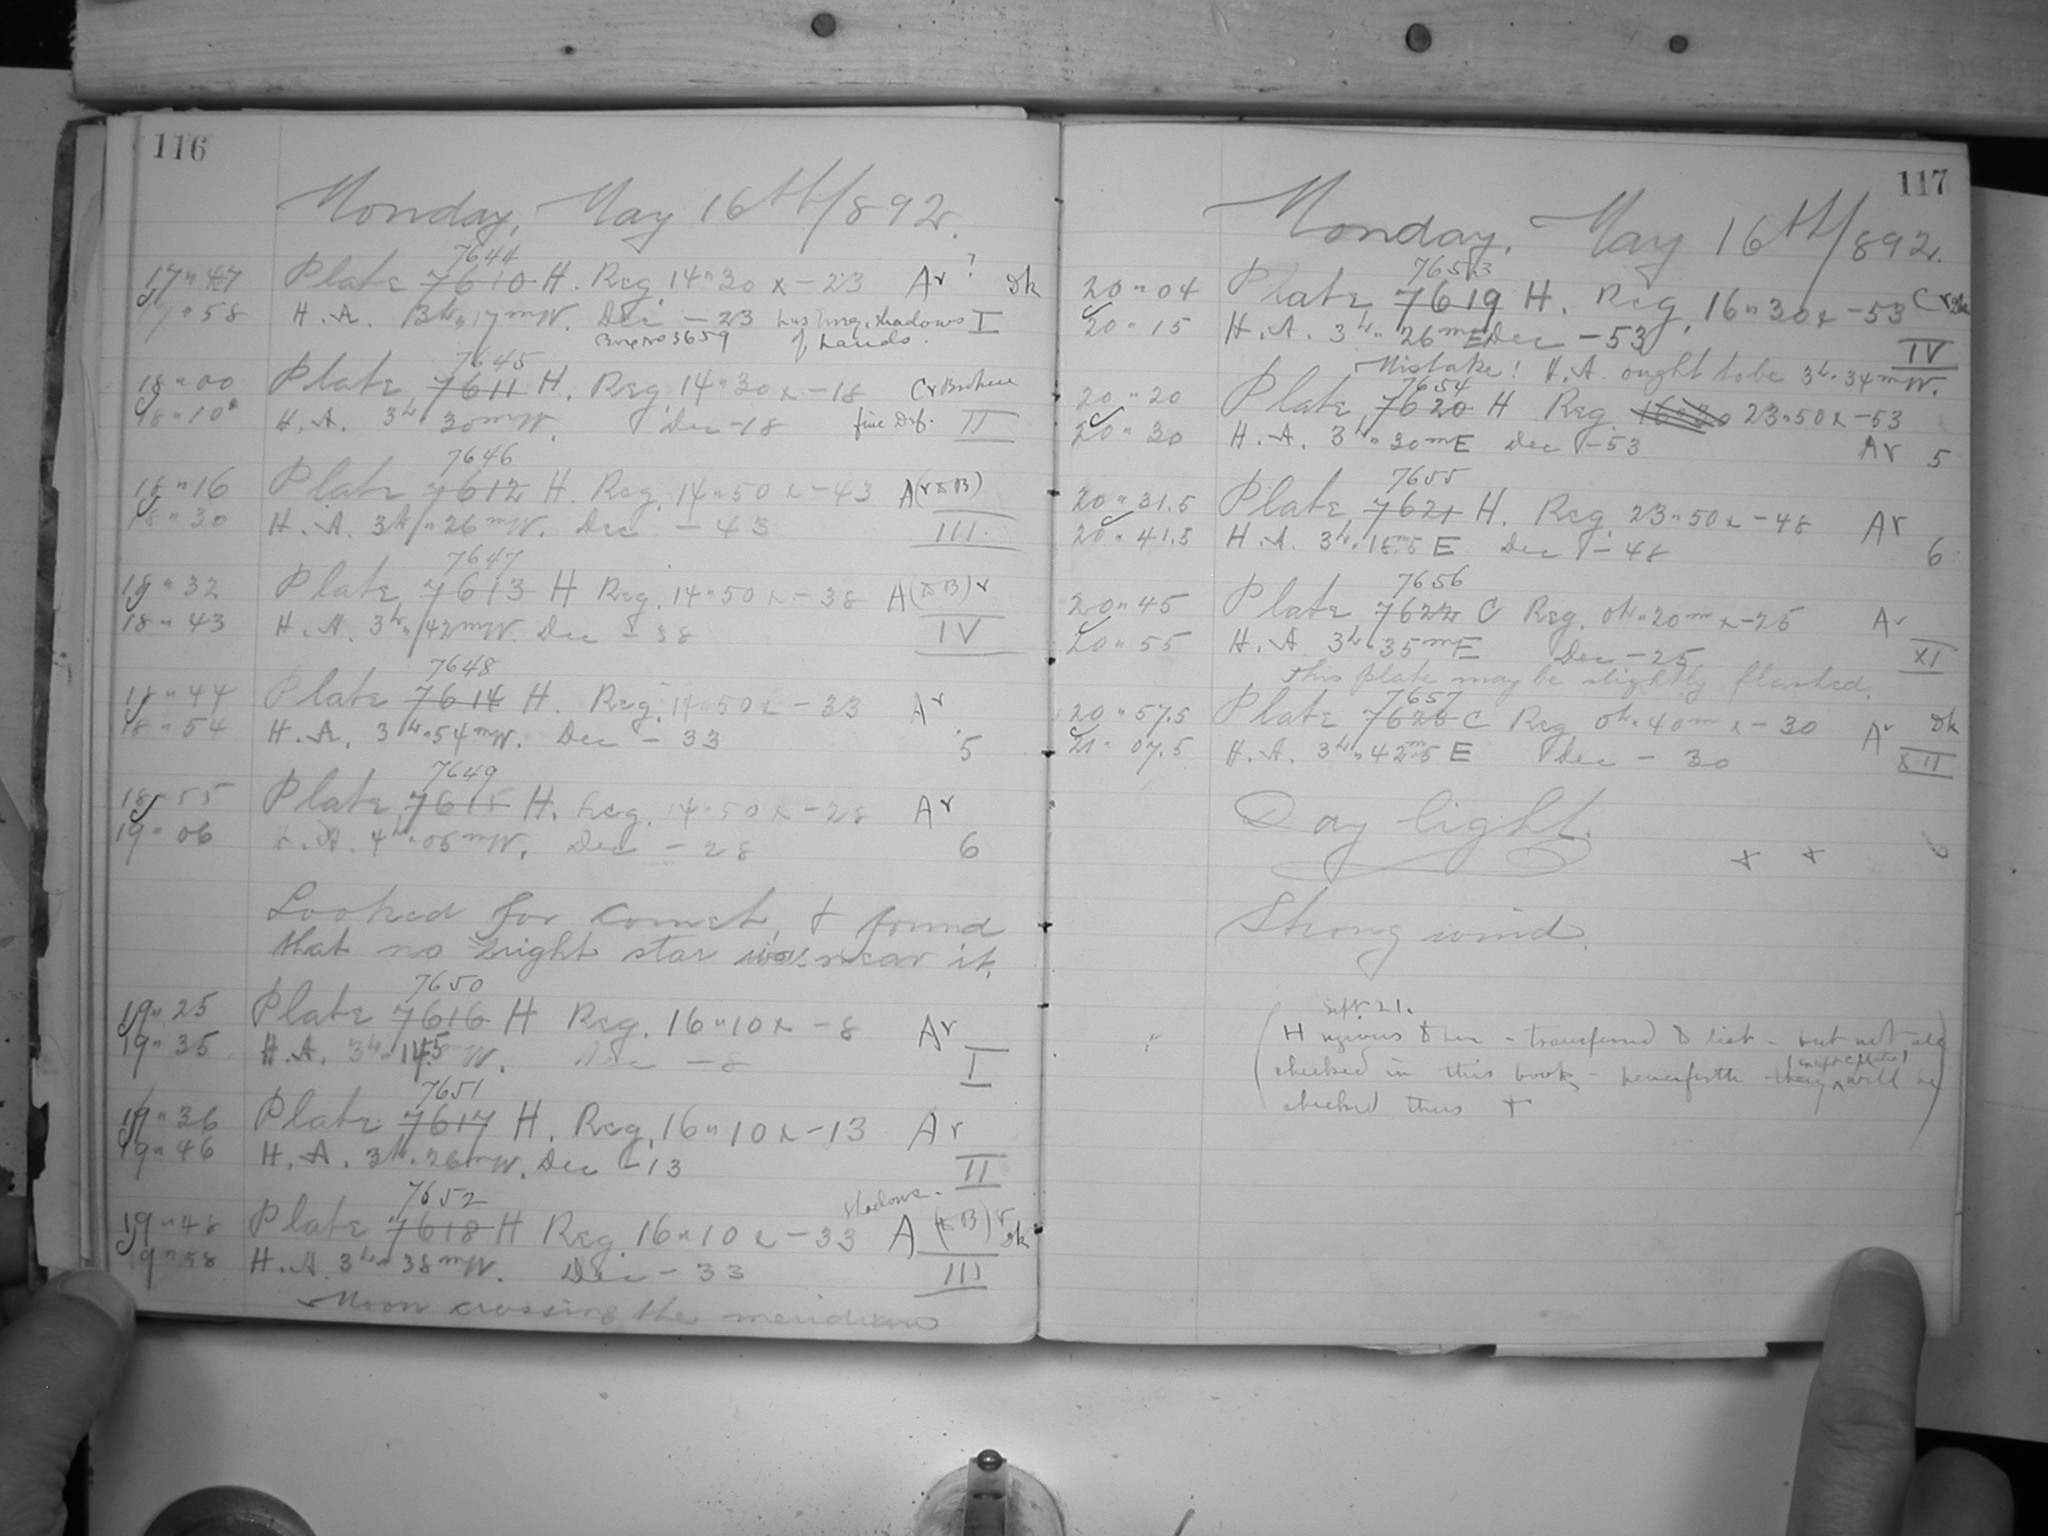 116
Monday, May 16th/892.
7644
17 " 47 Plate 7610 H. Reg. 14"30 x -23 Ar ? Dk
17 " 58 H. A. 3h " 17m W. Dec -23 shadows I
of hands.
7645
18 " 00 Plate 7611 H. Reg. 14"30 x -18 Cr Broken
18 " 10 H. A. 3h 30m W. Dec -18 fine Def. II
7646
18 " 16 Plate 7612 H. Reg. 14"50 x -43
18 " 30 H. A. 3h " 26m W. Dec -43 III.
7647
18 " 32 Plate 7613 H Reg. 14"50 x -38
18 " 43 H. A. 3h " 42m W. Dec -38 IV
7648
18 " 44 Plate 7614 H. Reg. 14"50 x -33 Ar
18 " 54 H. A. 3h " 54m W. Dec -33 5
7649
18 " 55 Plate 7615 H. Reg. 14"50 x -28 Ar
19 " 06 H. A. 4h " 05m W. Dec -28 6
Looked for Comet, & found
that no bright star was near it.
7650
19 " 25 Plate 7616 H Reg. 16"10 x -8 Ar
19 " 35 H. A. 3h " 15m W. Dec -8 I
7651
19 " 36 Plate 7617 H. Reg. 16"10 x -13 Ar
19 " 46 H. A. 3h " 26m W. Dec -13 II
7652 shadows.
19 " 48 Plate 7618 H Reg. 16"10 x -33 Dk
19 " 58 H. A. 3h " 38m W. Dec -33 III
Moon crossing the meridian
117
Monday, May 16th/892.
7653
20 " 04 Plate 7619 H. Reg. 16"30 x -53 Cr
20 " 15 H. A. 3h " 26m E Dec -53 IV
Mistake! H. A. ought to be 3h " 34m W.
7654
20 " 20 Plate 7620 H Reg. 16"30 23"50 x -53
20 " 30 H. A. 3h " 30m E Dec -53 Ar 5
7655
20 " 31.5 Plate 7621 H. Reg. 23"50 x -48 Ar
20 " 41.5 H. A. 3h " 18m.5 E Dec -48 6
7656
20 " 45 Plate 7622 C Reg. 0h " 20m x -25 Ar
20 " 55 H. A. 3h " 35m E Dec -25 XI
This plate may be slightly flashed.
7657
20 " 57.5 Plate 7623 C Reg 0h " 40m x -30 Ar Dk
21 " 07.5 H. A. 3h " 42m.5 E Dec -30 XII
Day light.
x x
Strong wind.
Sept. 21.
(H regions transferred to list - but not all
checked in this book - henceforth they (except C plates) will be
checked thus +)